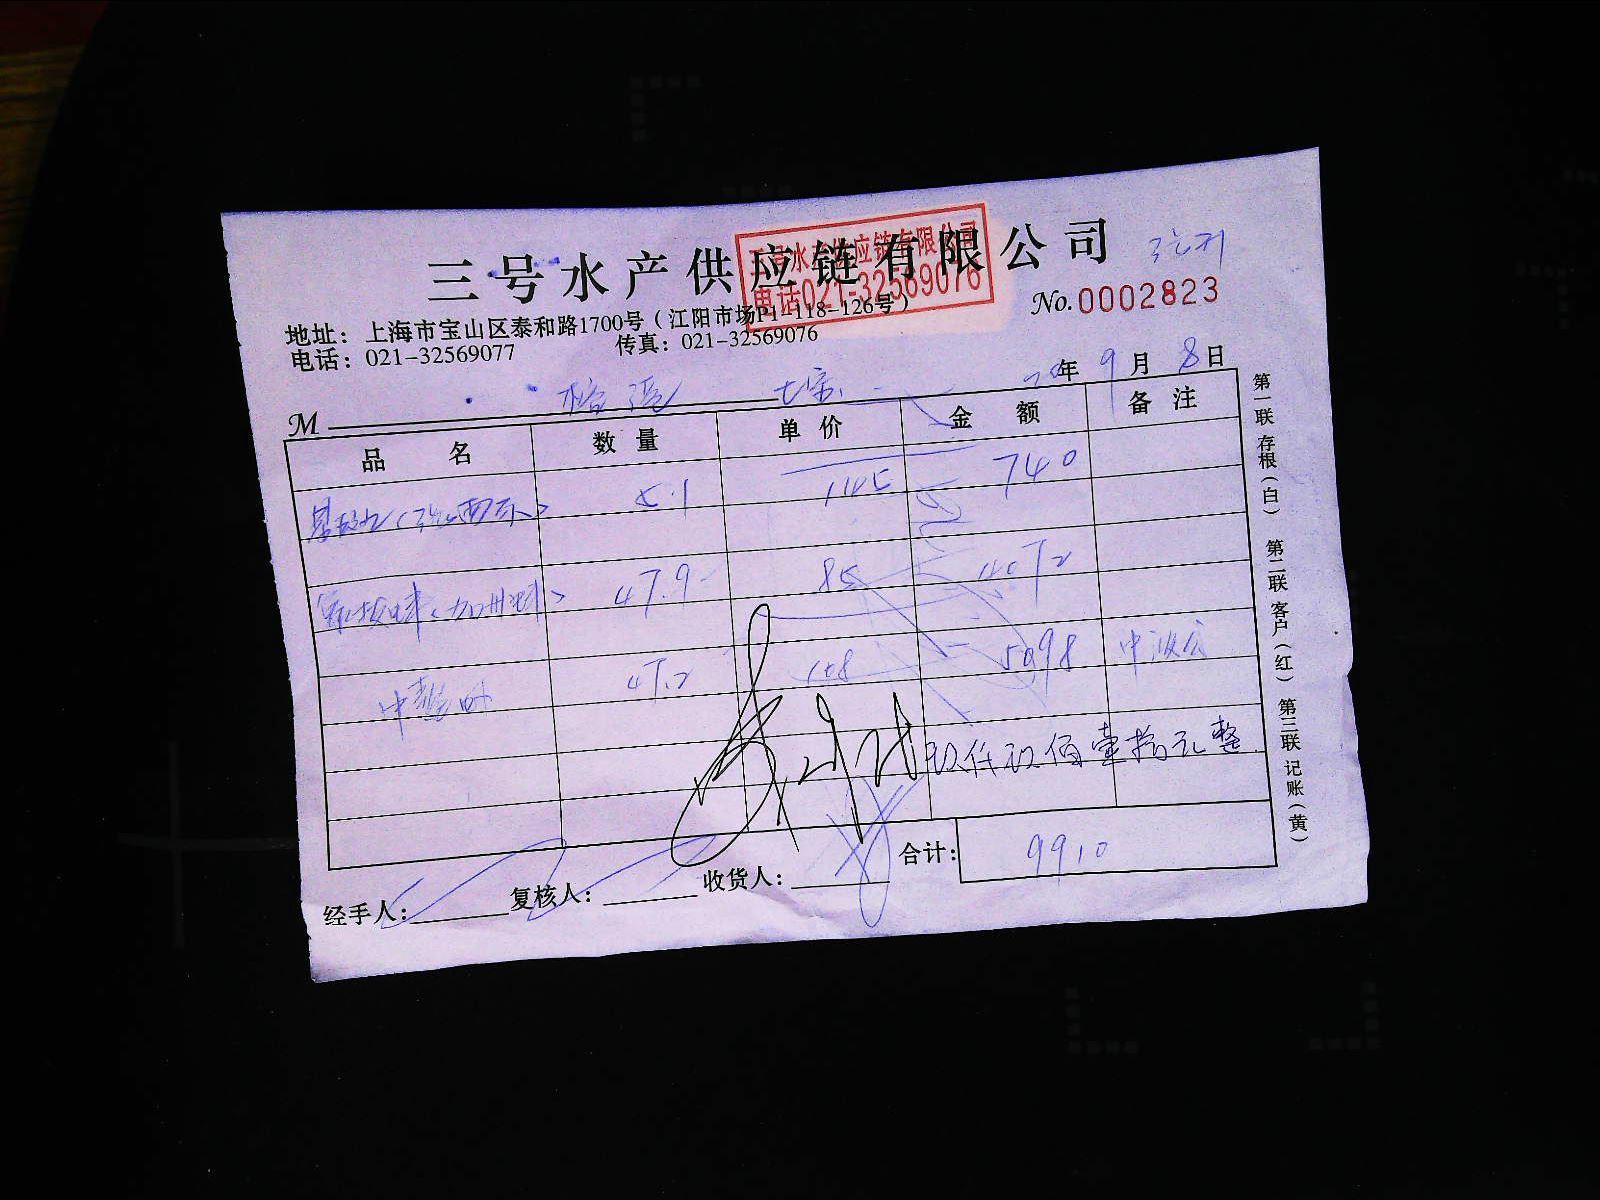 三号水产供应链有限公司
三号水产供应链有限公司
电话021-32569076
No.0002823
地址：上海市宝山区泰和路1700号（江阳市场P1-118-126号）
电话：021-32569077 传真：021-32569076
年 9 月 8 日
M
品 名 数 量 单 价 金 额 备 注
5.1 145 740
47.9 85 4072
47.2 108 5098
玖仟玖佰壹拾元整
合计： 9910
经手人： 复核人： 收货人：
第一联 存根（白） 第二联 客户（红） 第三联 记账（黄）